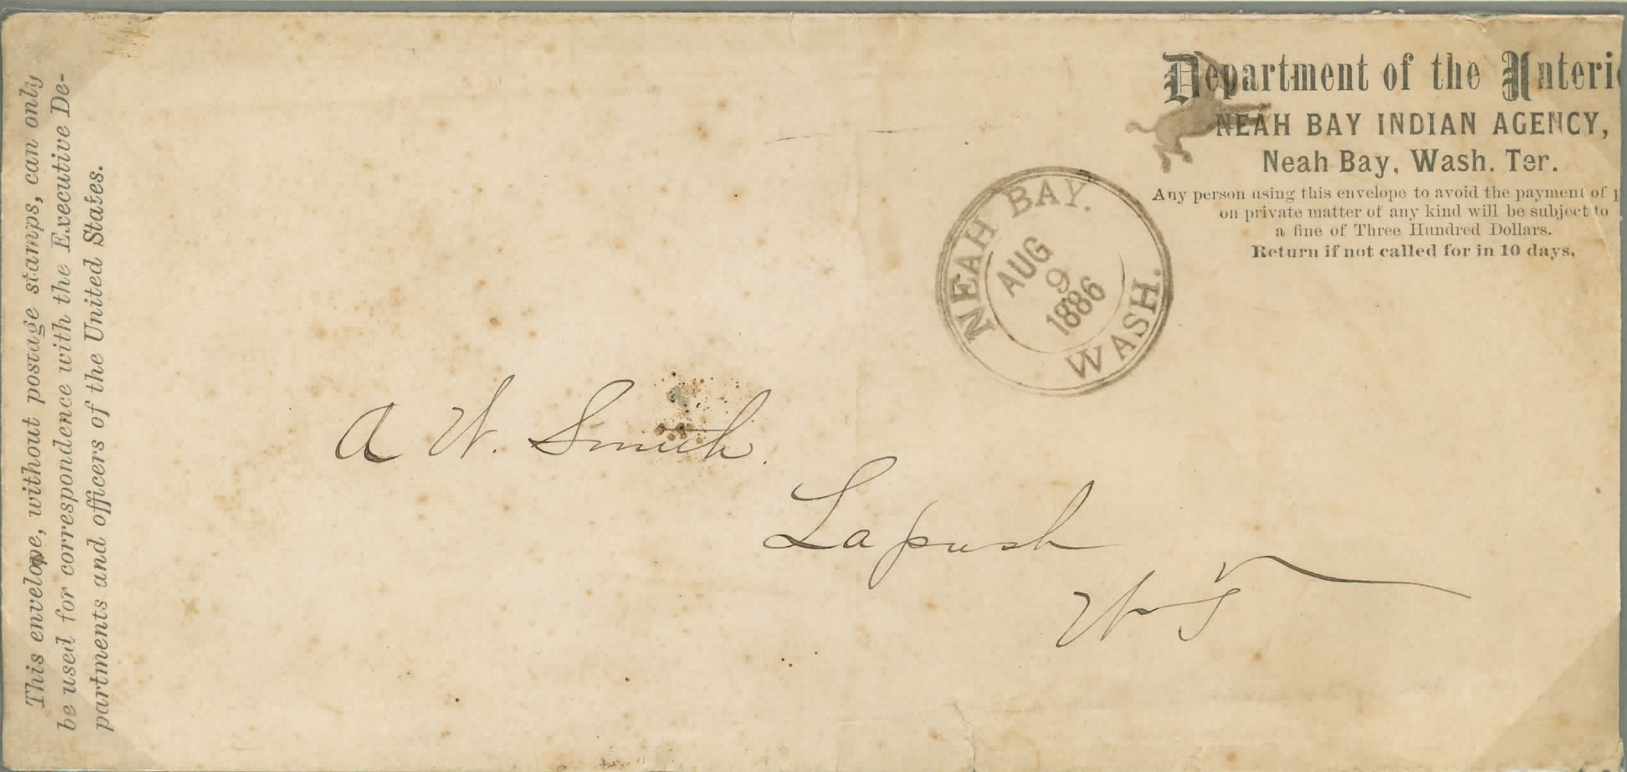 This envelope, without postage stamps, can only
be used for correspondence with the Executive De-
partments and officers of the United States.
Department of the Interi
NEAH BAY INDIAN AGENCY,
Neah Bay, Wash. Ter.
Any person using this envelope to avoid the payment of p
on private matter of any kind will be subject to
a fine of Three Hundred Dollars.
Return if not called for in 10 days.
NEAH BAY. WASH.
AUG
9
1886
A W. Smith.
Lapush
W T